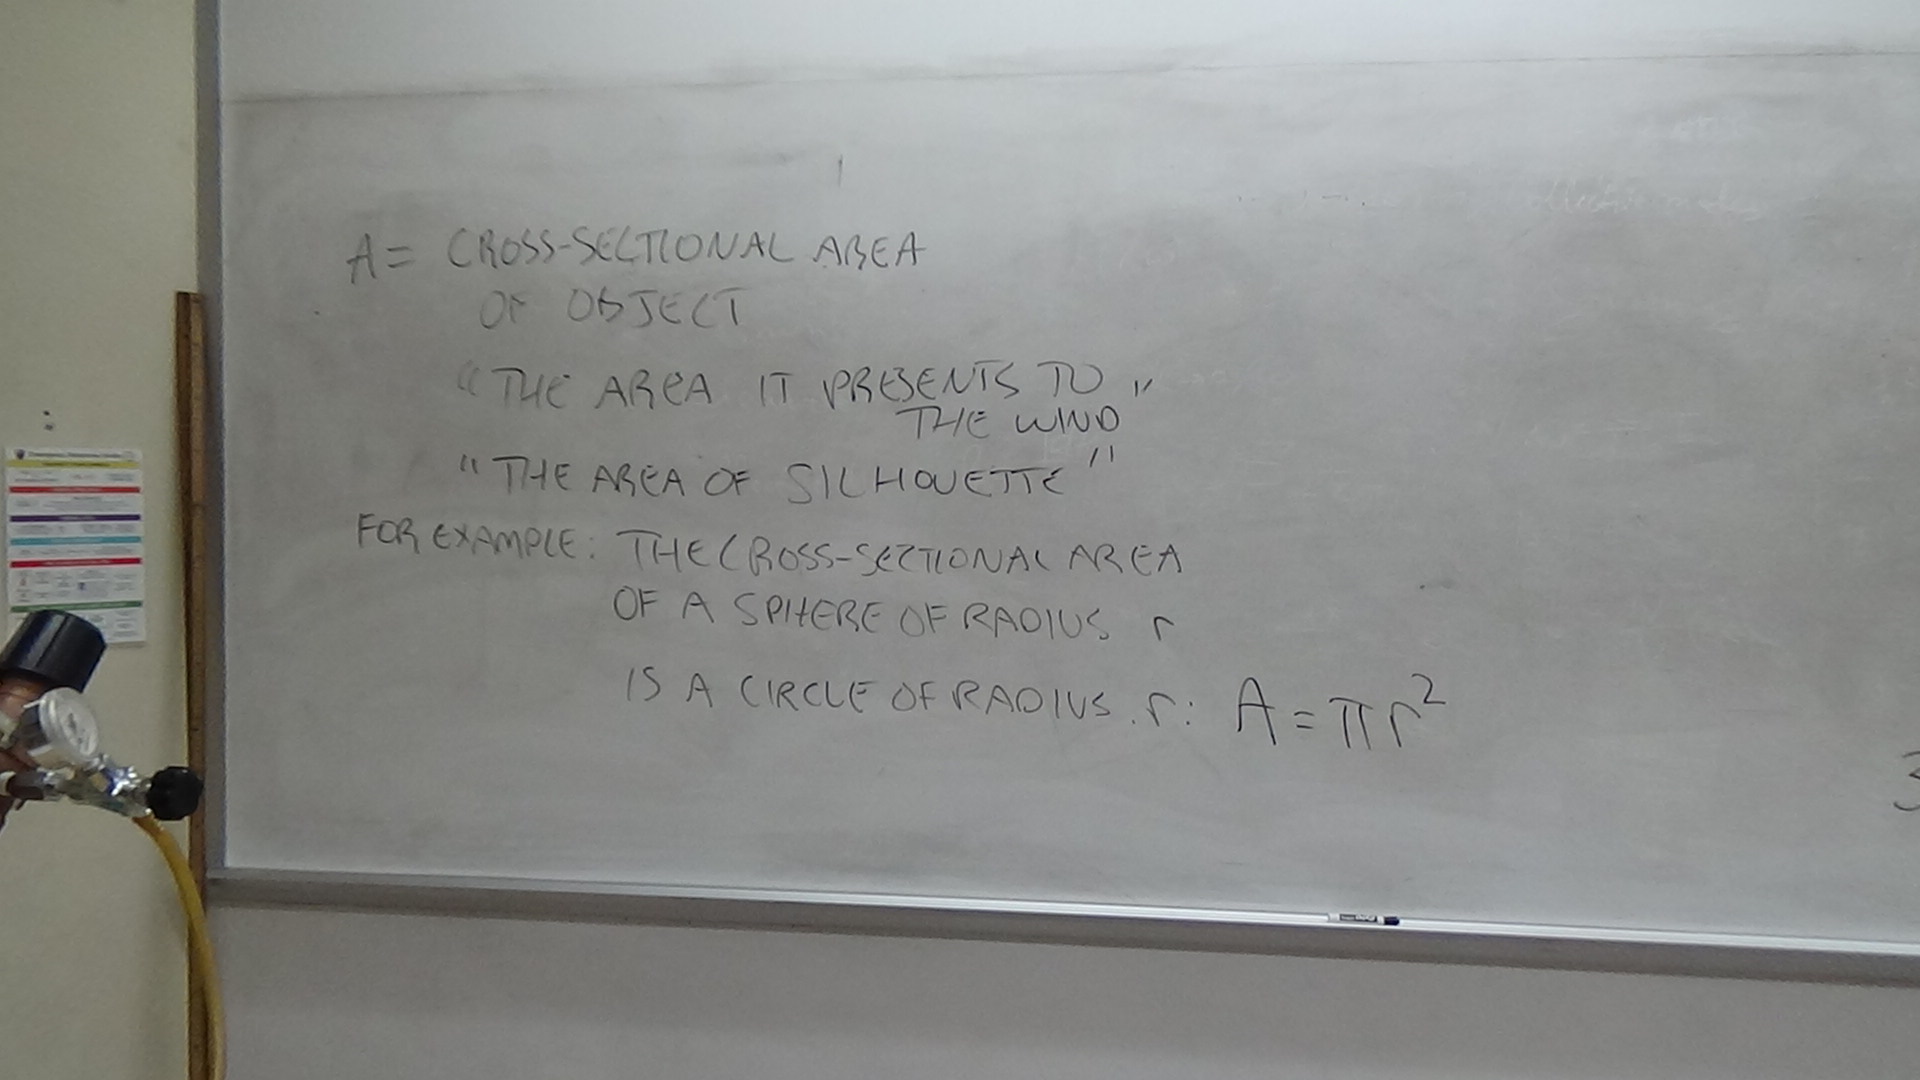 A = CROSS-SECTIONAL AREA
OF OBJECT
"THE AREA IT PRESENTS TO
THE WIND"
"THE AREA OF SILHOUETTE"
FOR EXAMPLE: THE CROSS-SECTIONAL AREA
OF A SPHERE OF RADIUS r
IS A CIRCLE OF RADIUS r: A = πr²
3